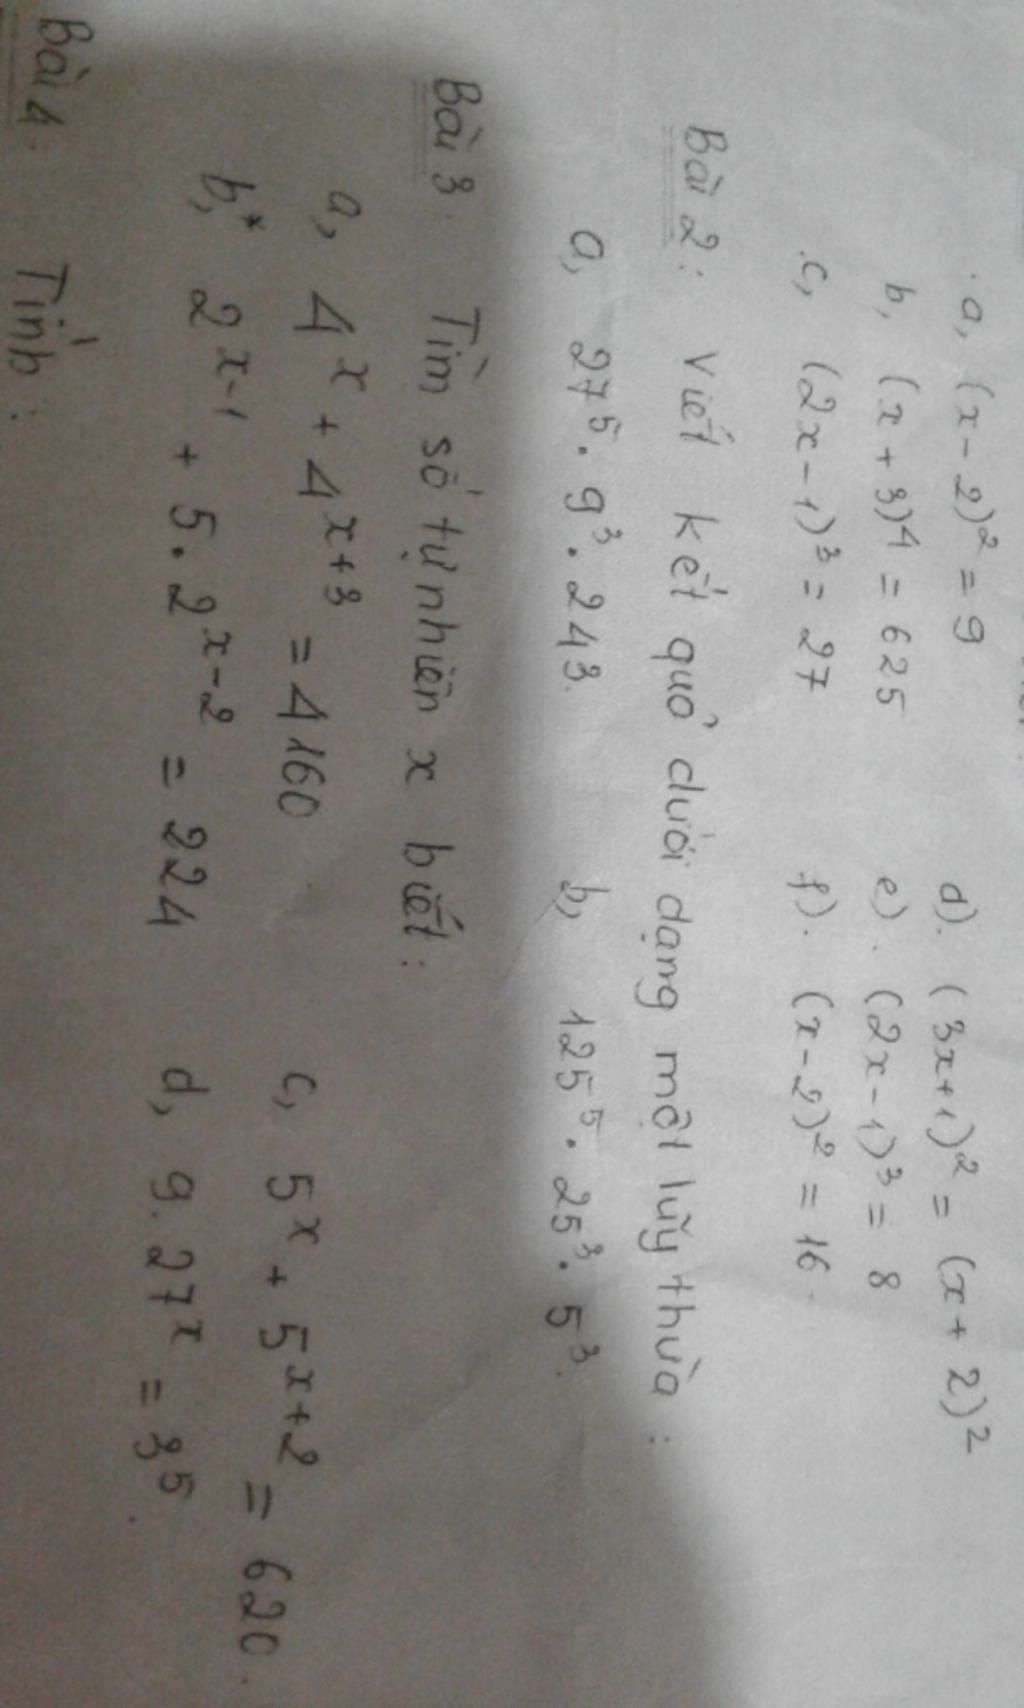 a, (x-2)² = 9    d). (3x+1)² = (x+2)²
b, (x+3)⁴ = 625    e). (2x-1)³ = 8
c, (2x-1)³ = 27    f). (x-2)² = 16.
Bài 2: Viết kết quả dưới dạng một lũy thừa:
a, 27⁵. 9³. 243.    b, 125⁵. 25³. 5³.
Bài 3. Tìm số tự nhiên x biết:
a, 4ˣ + 4ˣ⁺³ = 4160    c, 5ˣ + 5ˣ⁺² = 620.
b,* 2ˣ⁻¹ + 5. 2ˣ⁻² = 224    d, 9. 27ˣ = 3⁵.
Bài 4. Tính: